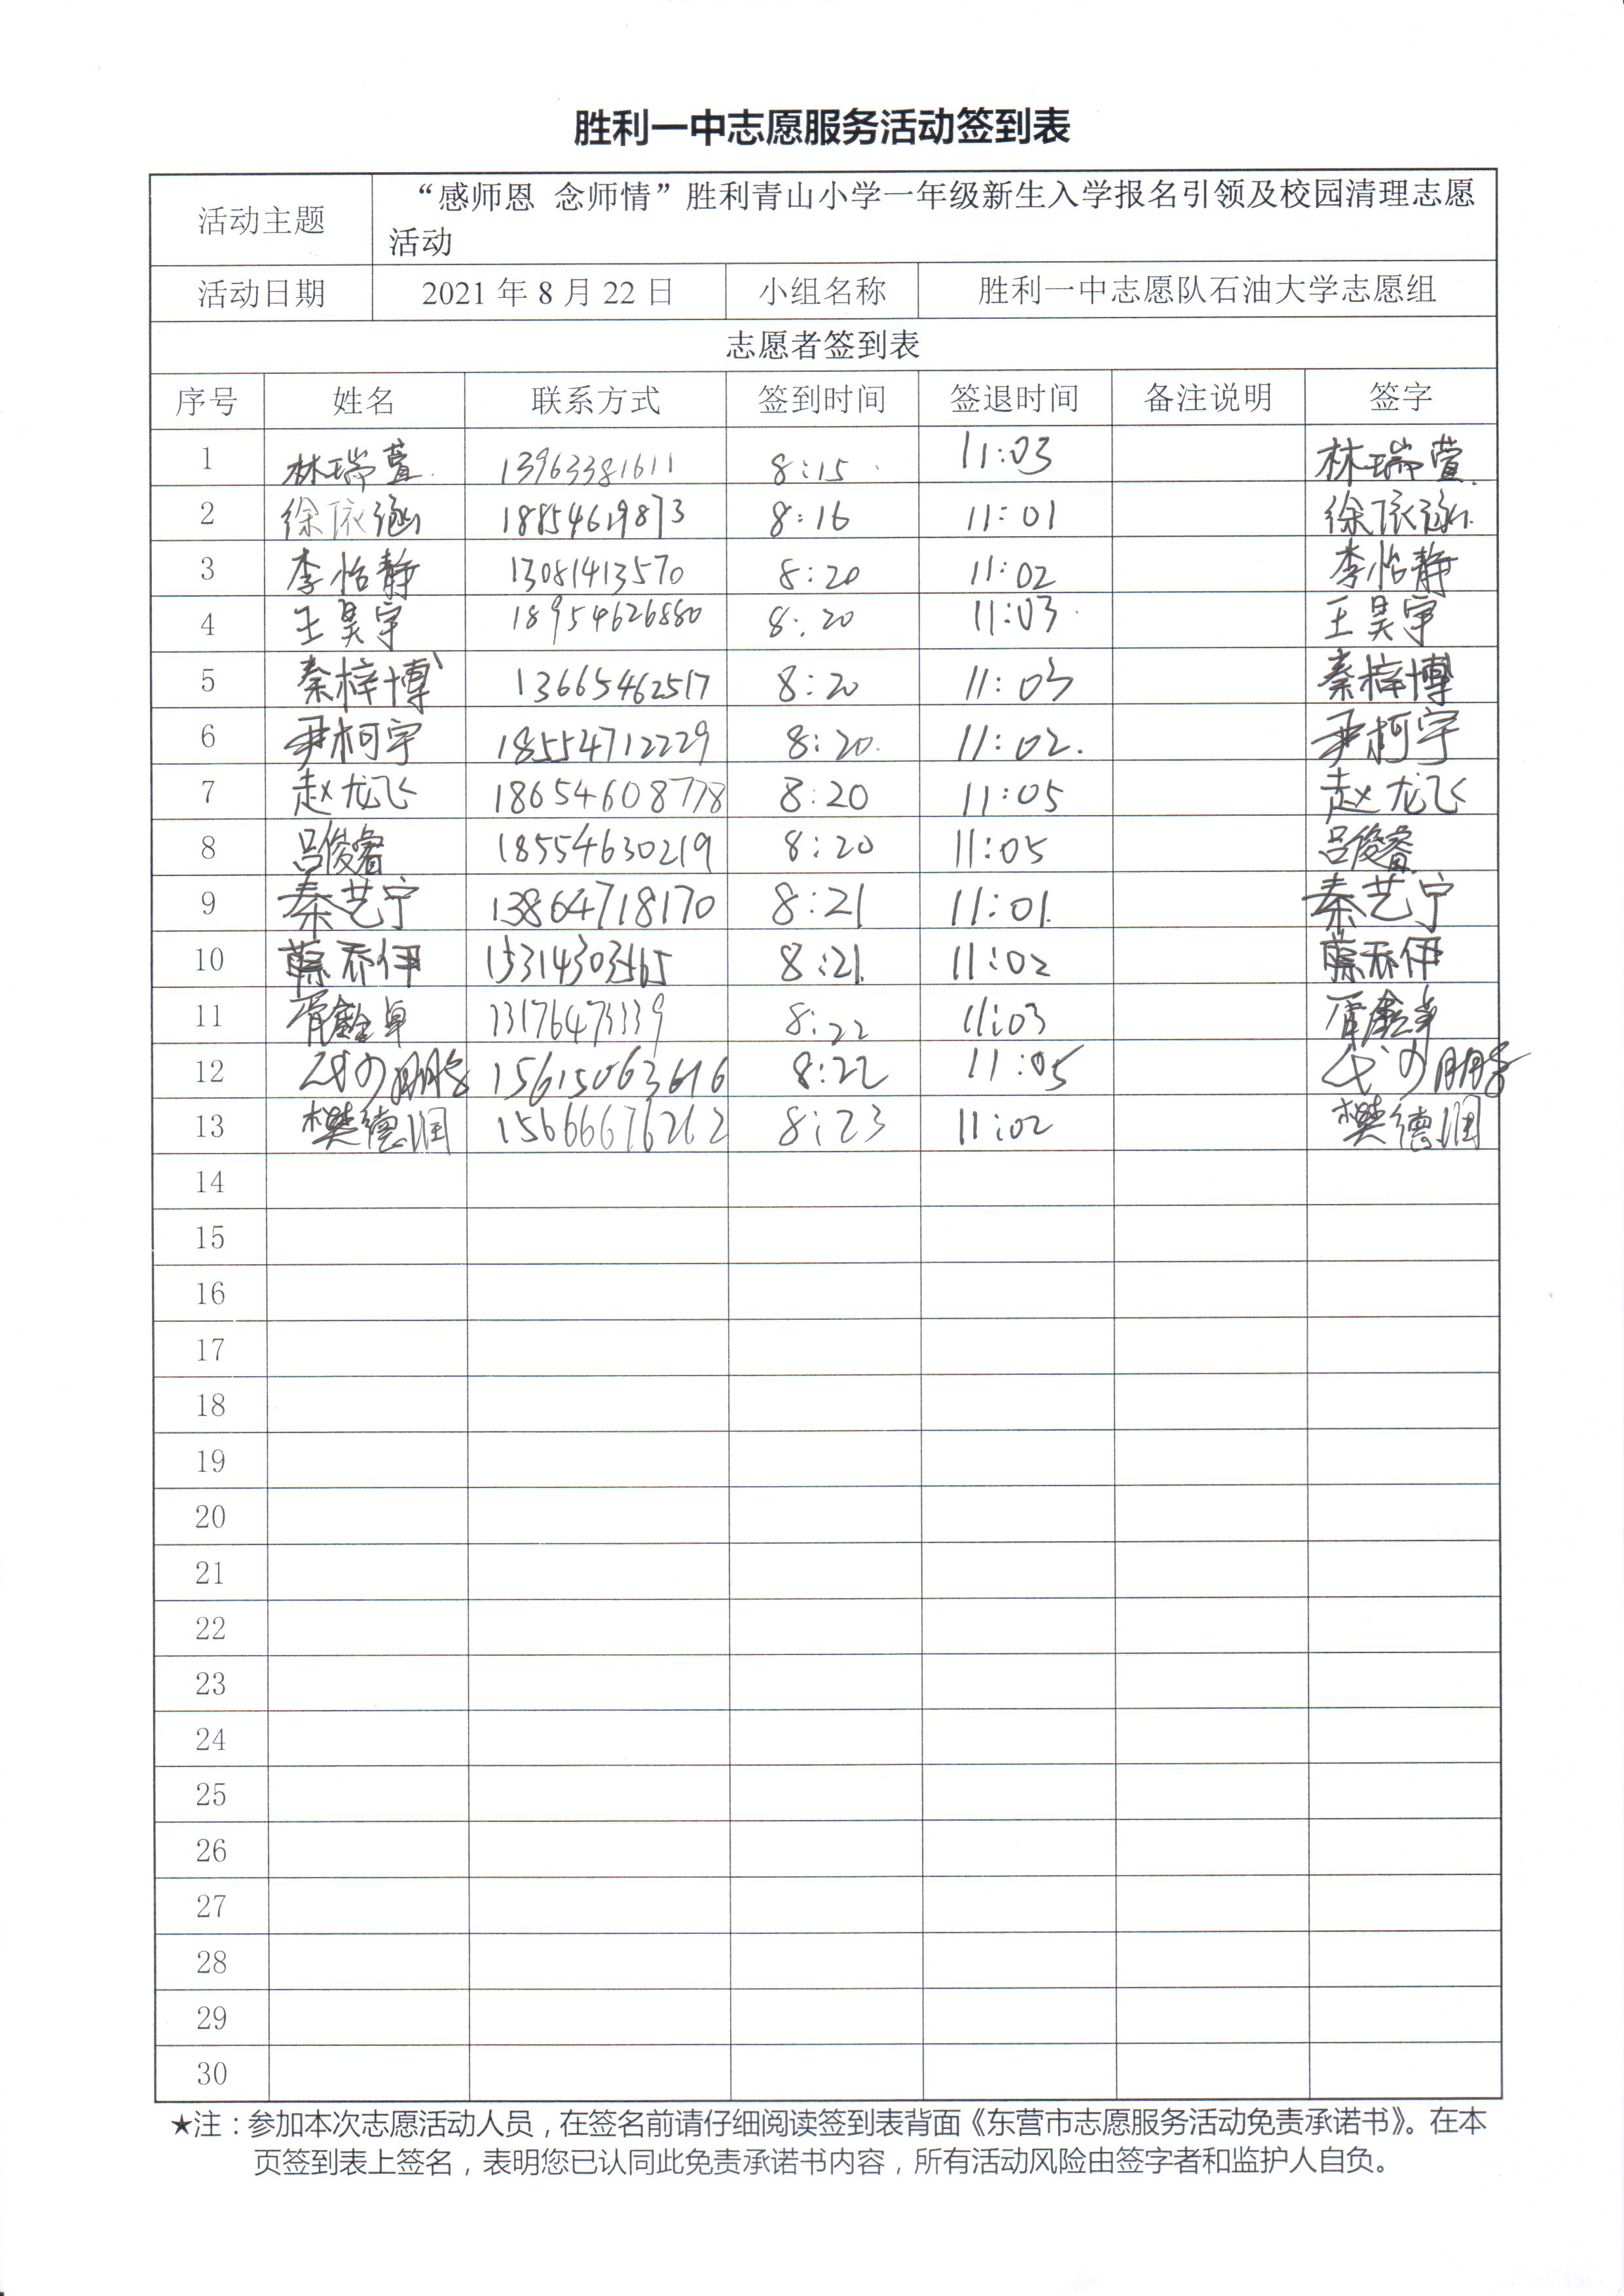 胜利一中志愿服务活动签到表
活动主题 “感师恩 念师情”胜利青山小学一年级新生入学报名引领及校园清理志愿
活动
活动日期 2021 年 8 月 22 日 小组名称 胜利一中志愿队石油大学志愿组
志愿者签到表
序号 姓名 联系方式 签到时间 签退时间 备注说明 签字
1 林瑞萱 13963381611 8:15 11:03 林瑞萱
2 徐依涵 18854619873 8:16 11:01 徐依涵
3 李怡静 13081413570 8:20 11:02 李怡静
4 王昊宇 18954626880 8:20 11:03 王昊宇
5 秦梓博 13665462517 8:20 11:03 秦梓博
6 尹柯宇 18554712229 8:20 11:02 尹柯宇
7 赵龙飞 18654608778 8:20 11:05 赵龙飞
8 吕俊睿 18554630219 8:20 11:05 吕俊睿
9 秦艺宁 13864718170 8:21 11:01 秦艺宁
10 蔡乔伊 8:21 11:02 蔡乔伊
11 13176473139 8:22 11:03
12 15615063616 8:22 11:05
13 樊德润 15666676262 8:23 11:02 樊德润
14
15
16
17
18
19
20
21
22
23
24
25
26
27
28
29
30
★注：参加本次志愿活动人员，在签名前请仔细阅读签到表背面《东营市志愿服务活动免责承诺书》。在本
页签到表上签名，表明您已认同此免责承诺书内容，所有活动风险由签字者和监护人自负。